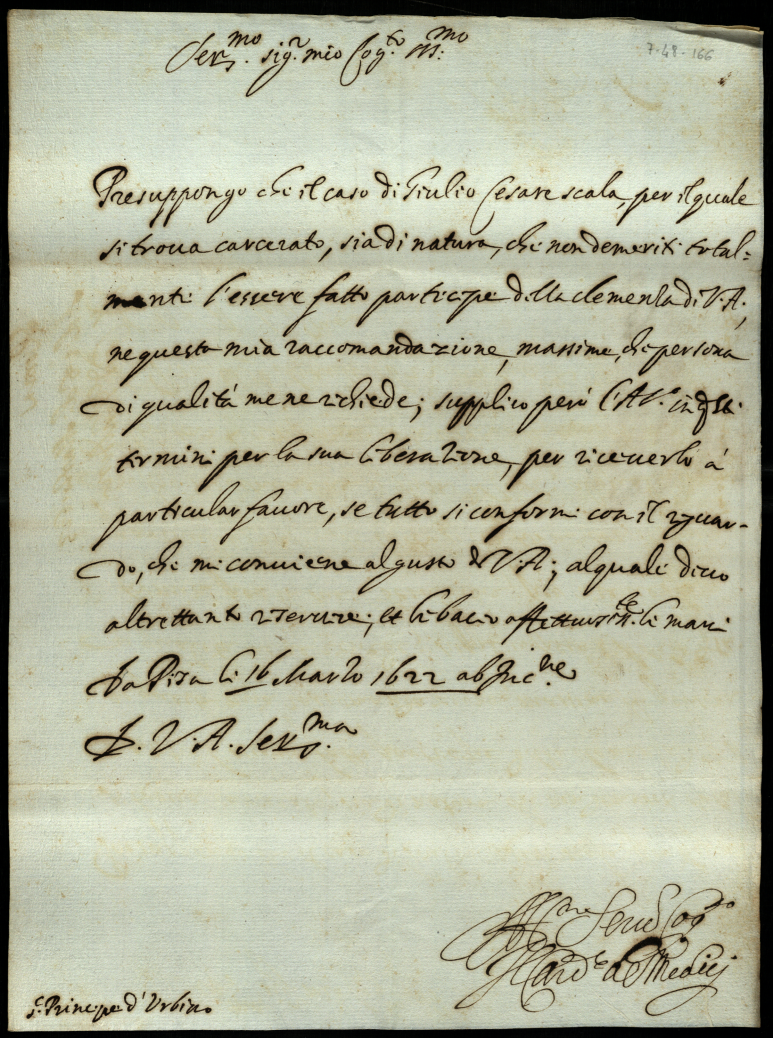 Ser.mo sig.r mio Cog.to oss.mo
7-48-166
Presuppongo che il caso di Giulio Cesare scala, per il quale
si troua carcerato, sia di natura, che non demeriti total=
mente l'essere fatto partecipe della clemenza di V.A.,
ne questa mia raccomandazione, massime, che persona
di qualità me ne richiede; supplico però l'A.V. in q.sti
termini per la sua liberazione, per riceuerlo à
particular fauore, se tutto si conformi con il riguar-
do, che mi conuiene al gusto di V.A; al quale deuo
altrettanto riserire; et li bacio affettuosis.te le mani
Da Pisa li 16 Marzo 1622 ab Inc.ne
D. V. A. Ser.ma
Aff.mo Seru.r Cog.to
Il Card.le de Medici
s.r Principe d'Urbino